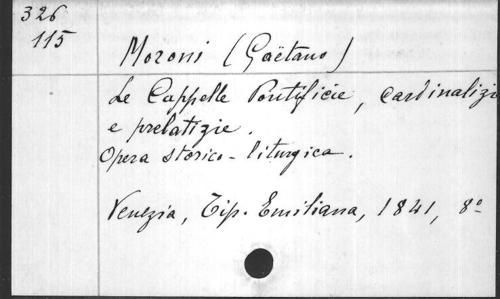 326
115
Moroni (Gaëtano)
Le Cappelle Pontificie, cardinalizi
e prelatizie.
Opera storico-liturgica.
Venezia, Tip. Emiliana, 1841, 8º